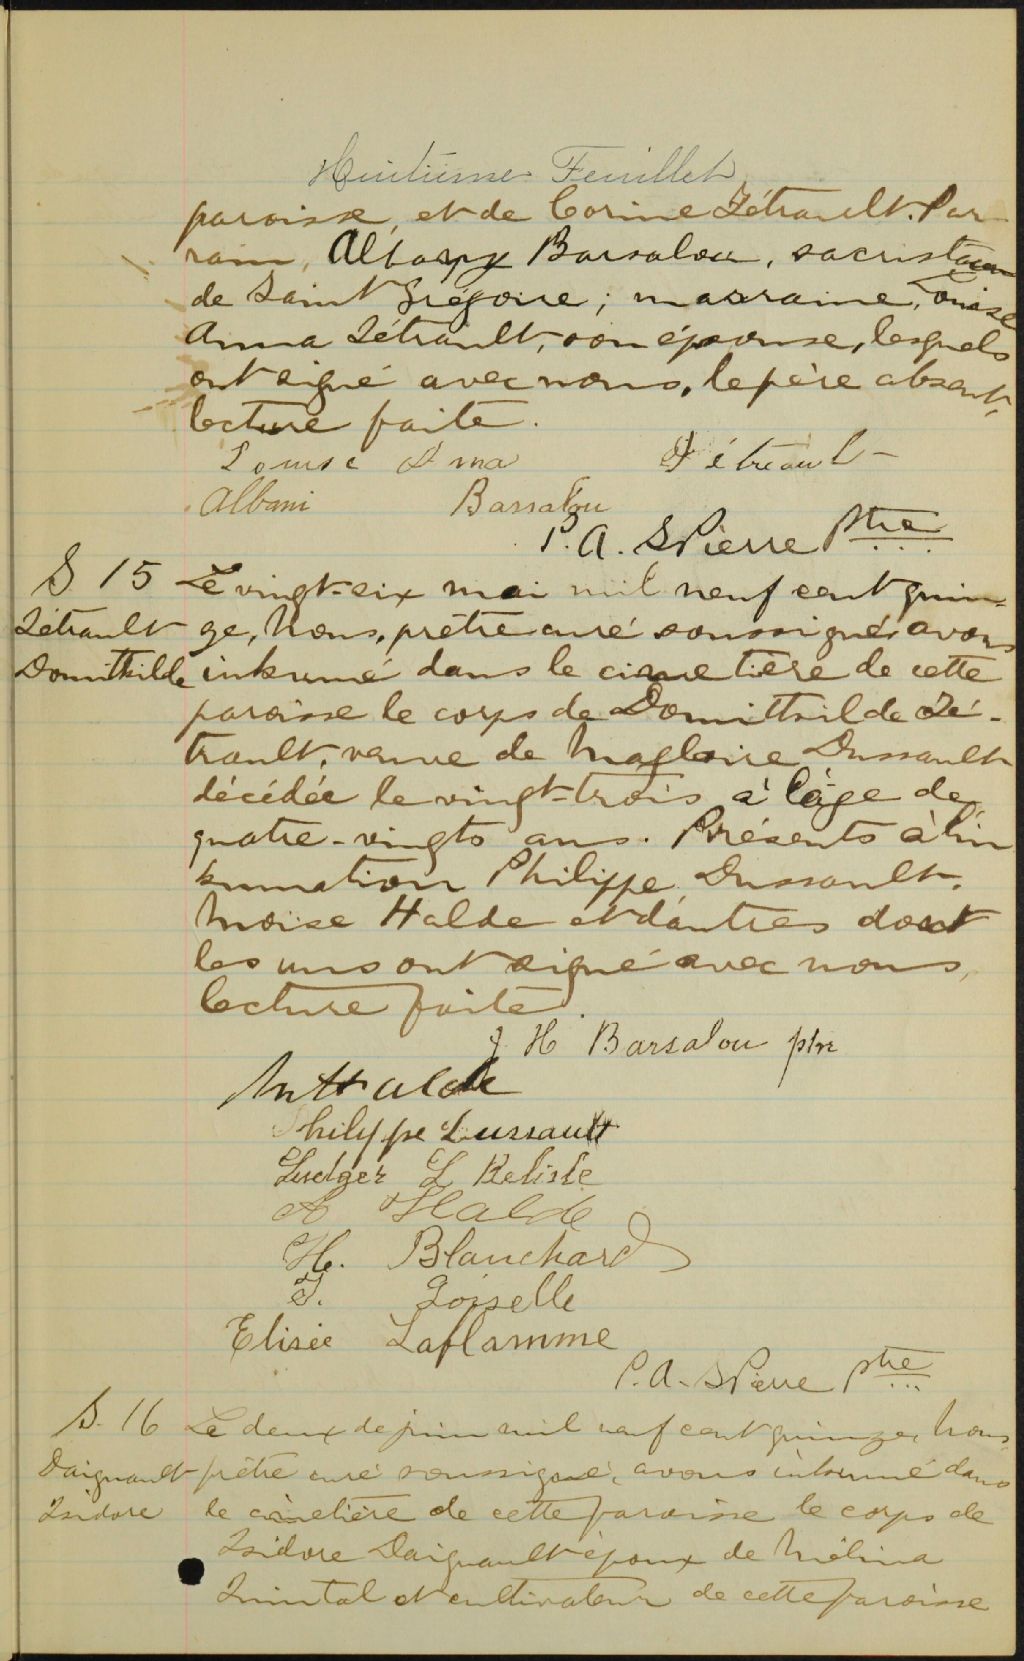 Huitième Feuillet
paroisse, et de Corine Tétrault. Par-
rain, Albany Barsalou, sacristain
de Saint Grégoire; marraine, Louise
Anna Tétrault, son épouse, lesquels
ont signé avec nous, le père absent,
lecture faite.
Louise Anna Tétrault
Albani Barsalou
P. A. St Pierre Ptre
S 15 Le vingt-six mai mil neuf cent quin-
Tétrault ze, Nous, prêtre curé soussigné, avons
Domithilde inhumé dans le cimetière de cette
paroisse le corps de Domithilde Té-
trault, veuve de Magloire Dussault
décédée le vingt-trois à l'âge de
quatre-vingts ans. Présents à l'in
humation Philippe Dussault,
Moïse Halde et d'autres dont
les uns ont signé avec nous,
lecture faite.
J H Barsalou ptre
M Halde
Philippe Dussault
Ludger L Belisle
A Halde
H. Blanchard
J. Loiselle
Elisée Laflamme
P. A. St Pierre Ptre
S. 16 Le deux de juin mil neuf cent quinze, Nous,
Daignault prêtre curé soussigné, avons inhumé dans
Isidore le cimetière de cette paroisse le corps de
Isidore Daignault époux de Mélina
Quintal et cultivateur de cette paroisse